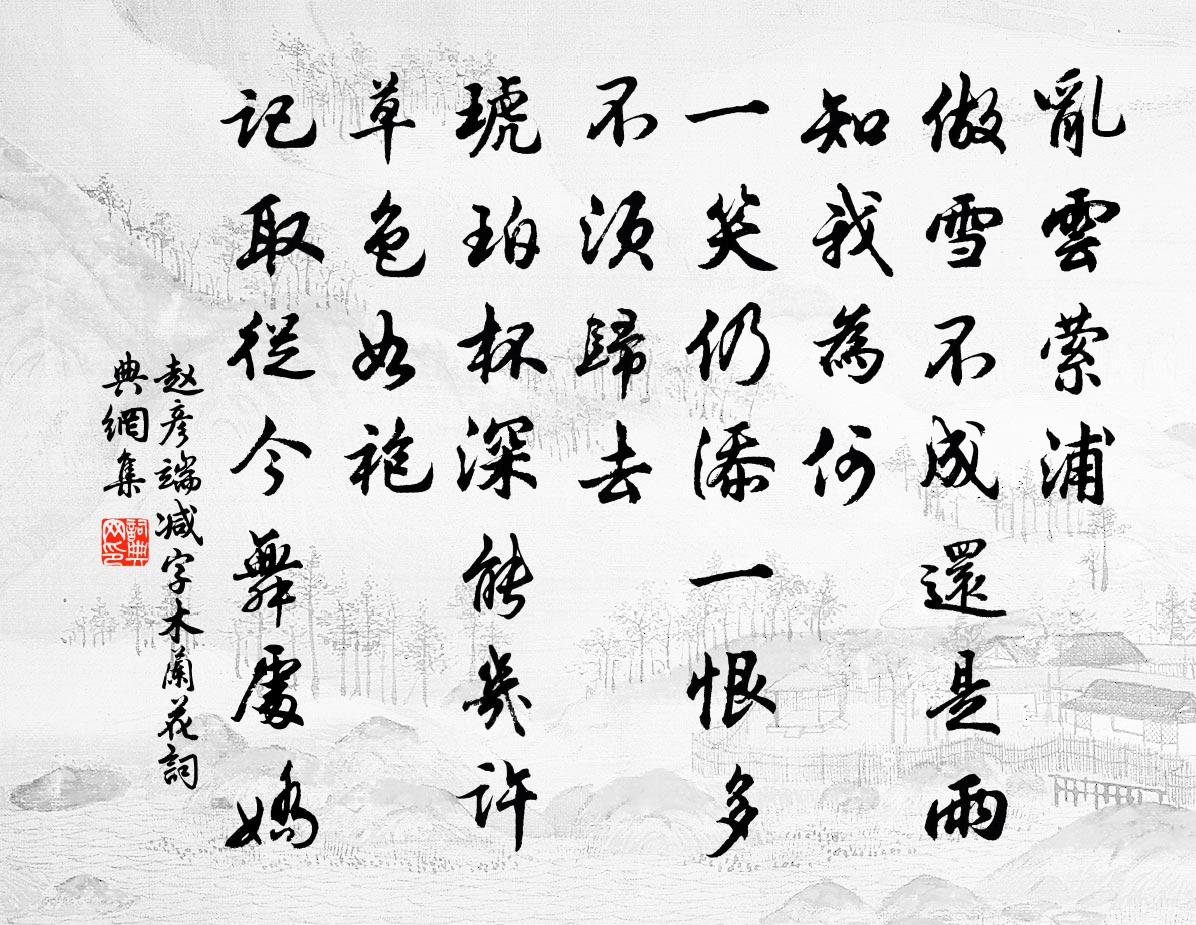 亂雲縈浦
做雪不成還是雨
知我為何
一笑仍添一恨多
不須歸去
琥珀杯深能幾許
草色如袍
記取從今舞處嬌
赵彥端減字木蘭花詞
典網集
詞典
网印